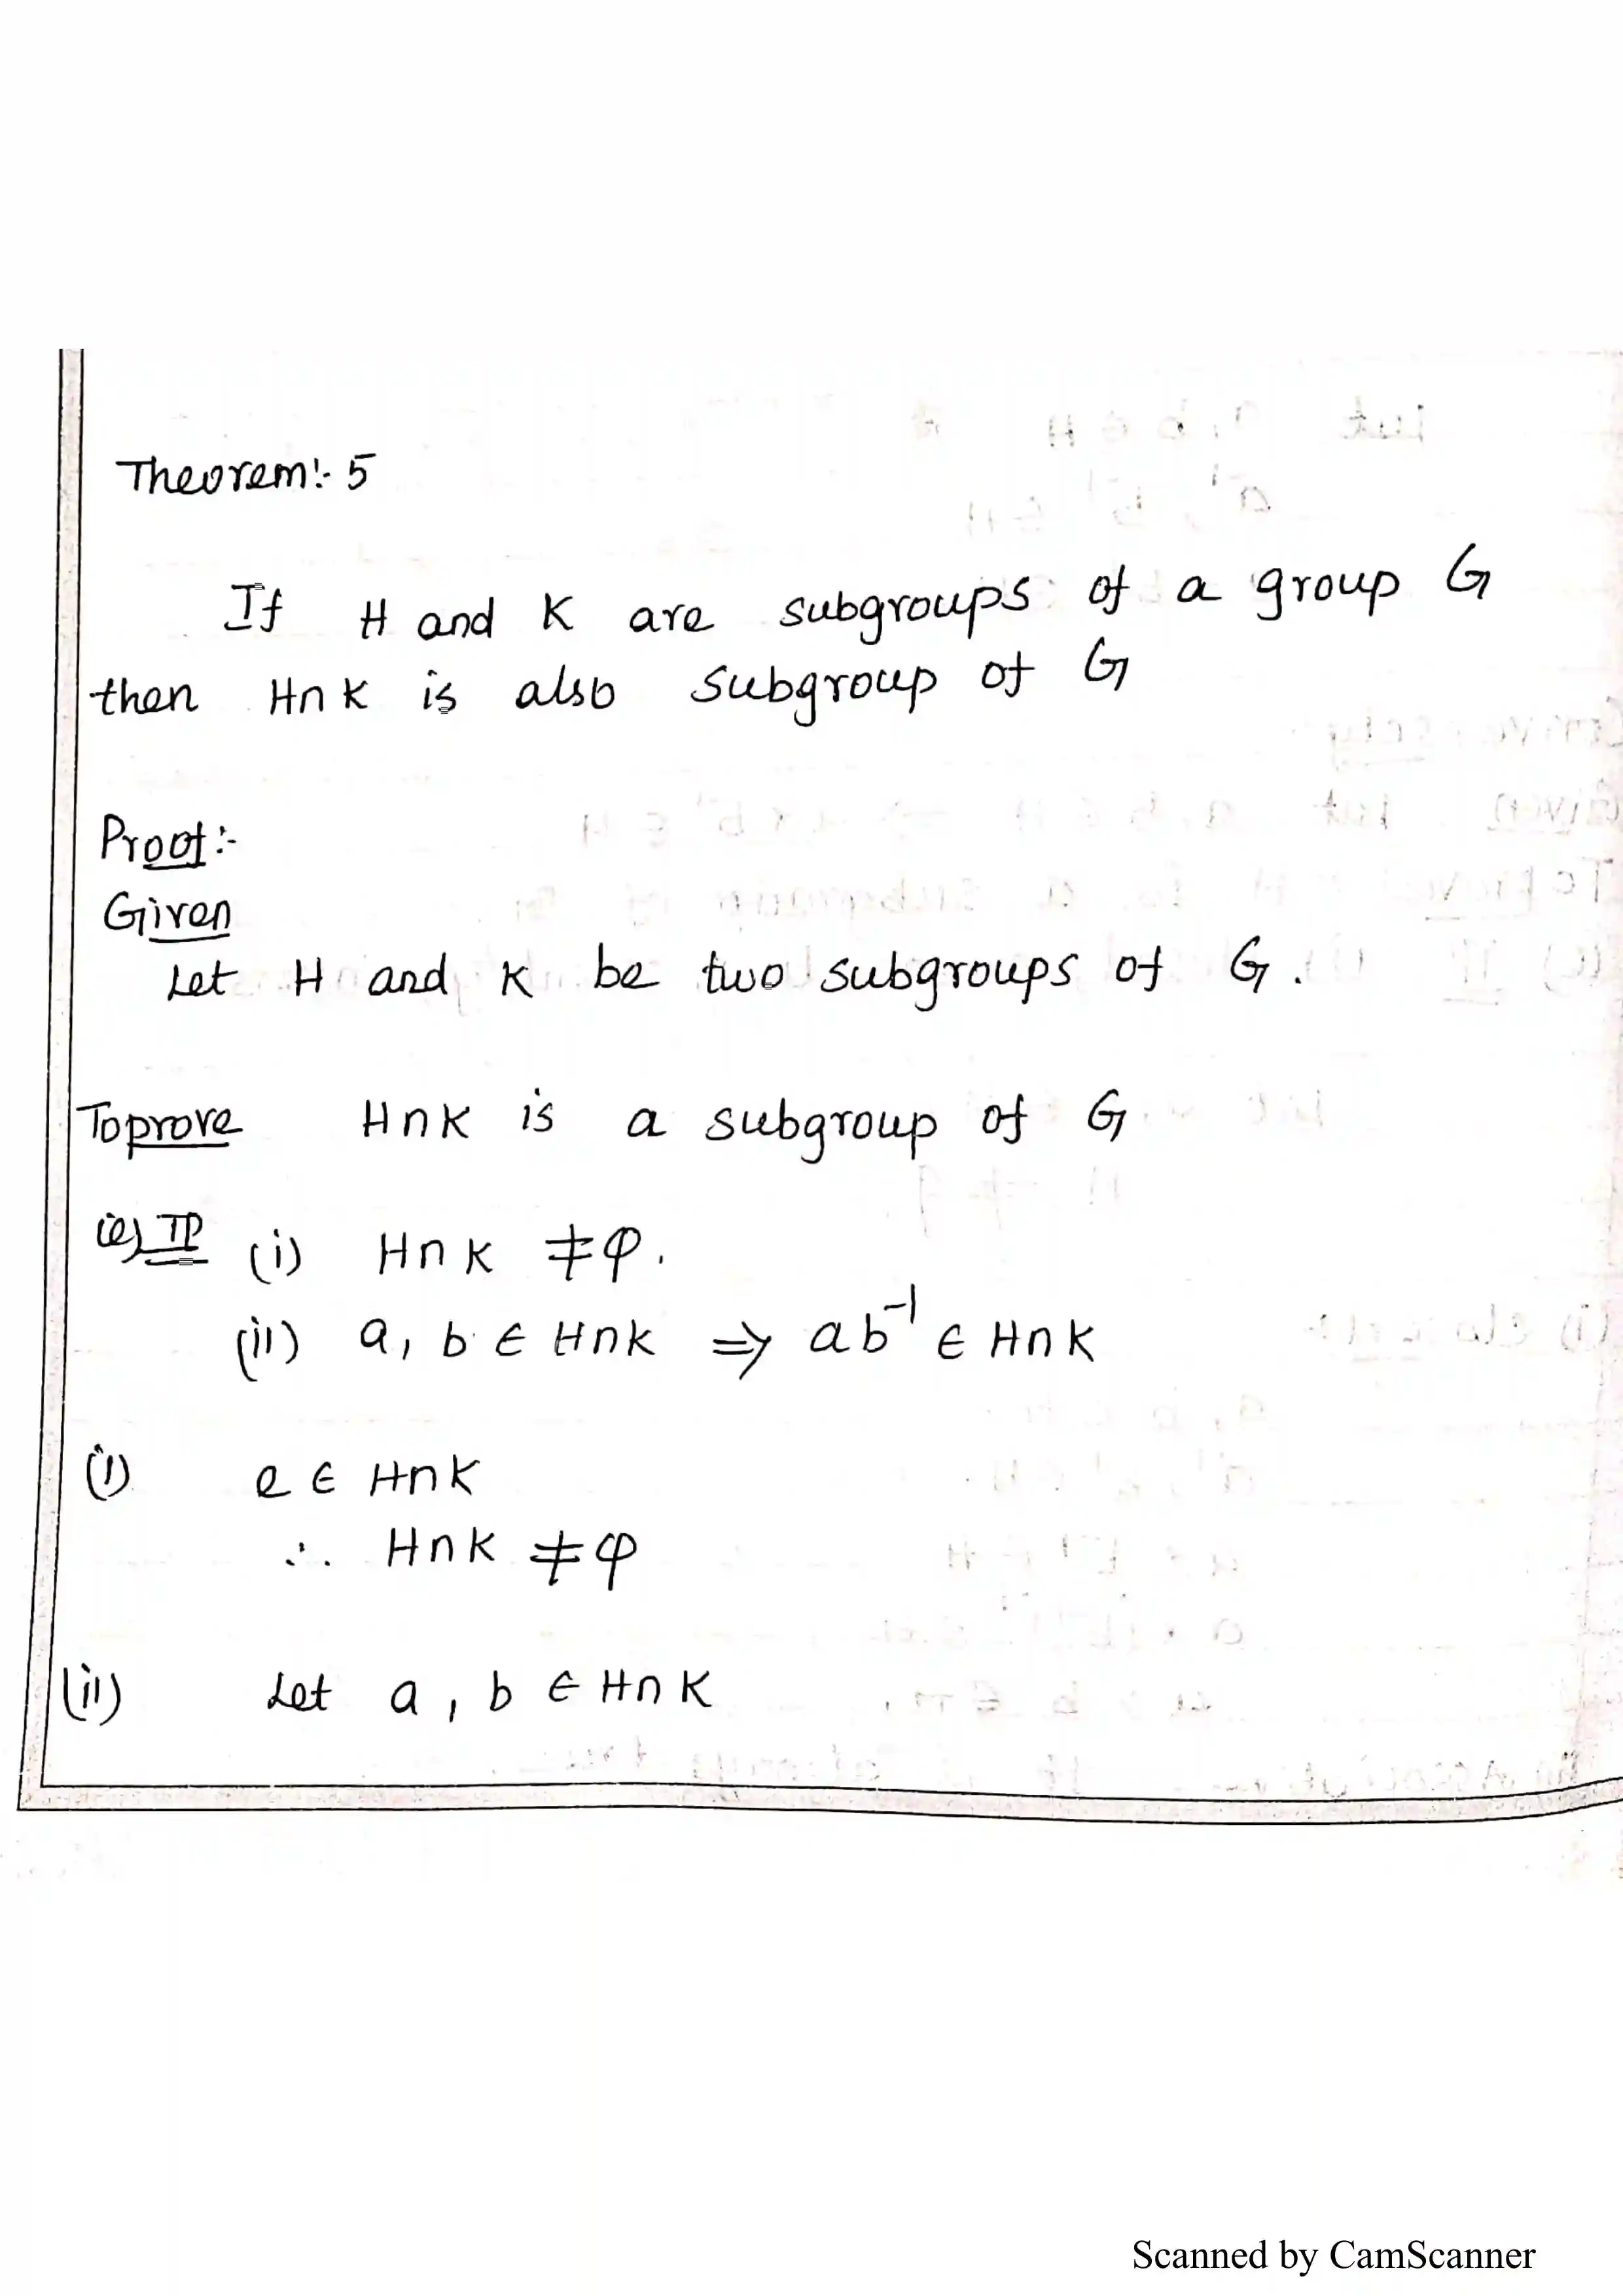 Theorem:- 5
If H and K are subgroups of a group G
then H∩K is also subgroup of G
Proof:-
Given
Let H and K be two subgroups of G.
Toprove H∩K is a subgroup of G
(ie) TP (i) H∩K ≠ φ.
(ii) a, b ∈ H∩K ⇒ ab⁻¹ ∈ H∩K
(i) e ∈ H∩K
∴ H∩K ≠ φ
(ii) Let a, b ∈ H∩K
Scanned by CamScanner